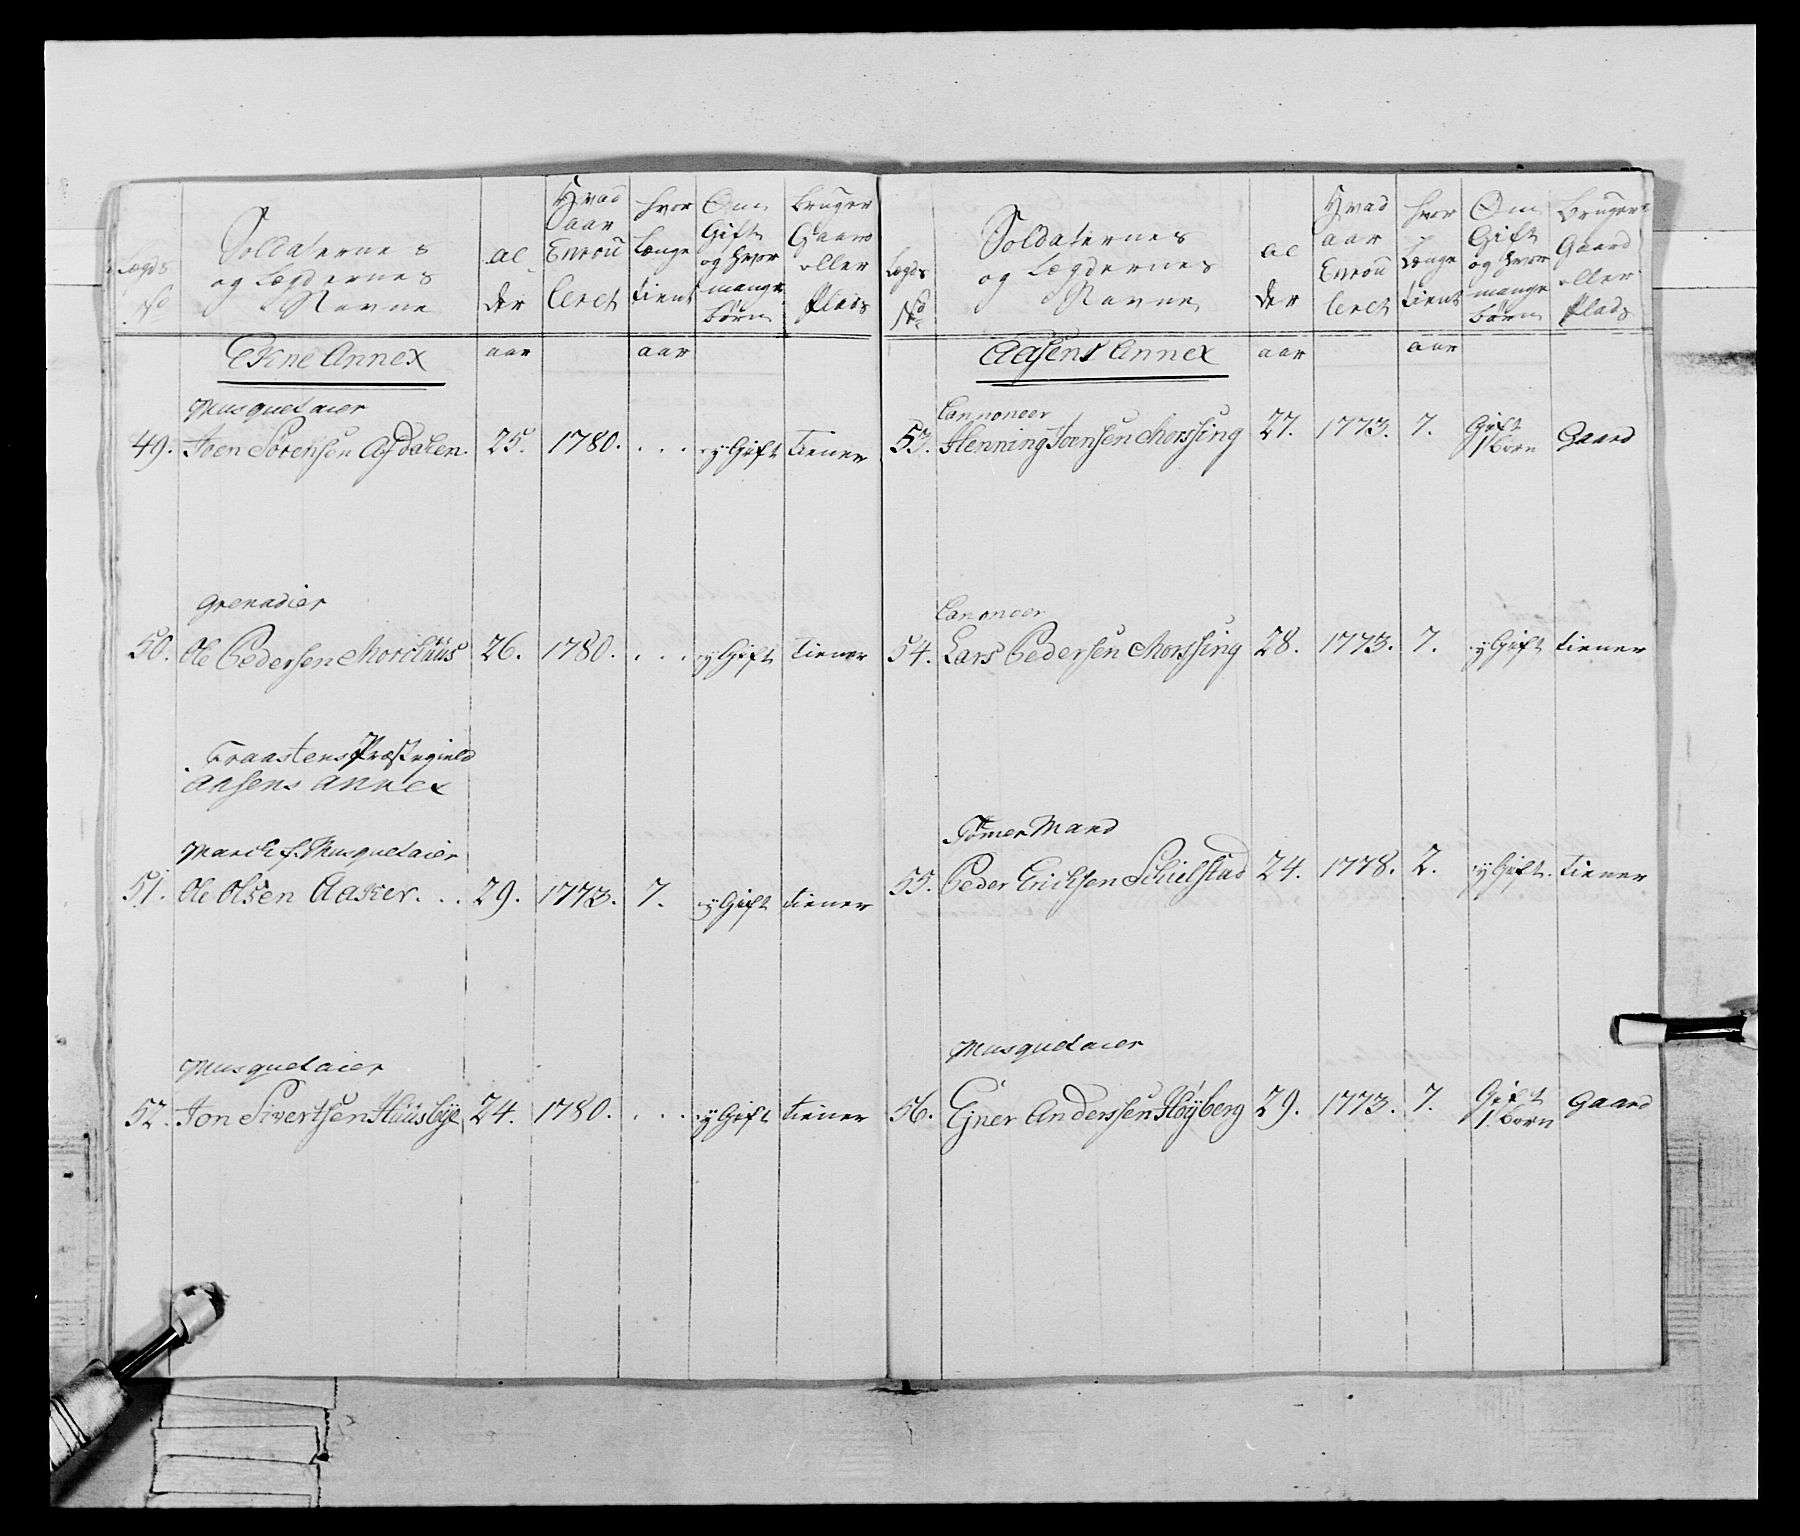 Lægds
No
Soldaternes
og Lægdernes
Navne
al
der
Hvad
aar
Enrou
leret
hvor
længe
tient
Om
Gift
og hvor
mange
børn
bruger
Gaard
eller
Plads
Ekne Annex
aar
aar
Musquetaier
49. Joen Sørensen Aasdalen. 25. 1780. . . . y Gift Tiener
Grenadier
50. Ole Pedersen Morclüüs 26. 1780. . . . y Gift Tiener
Fraastens Præstegield
Aasens Annex
Musquetaier
51. Ole Olsen Aaker. . . 29. 1773. 7. y Gift tiener
Musquetaier
52. Jon Sivertsen Huusbÿe 24. 1780. . . . y Gift tiener
Lægds
No
Soldaternes
og Lægdernes
Navne
al
der
Hvad
aar
Enrou
leret
hvor
længe
tient
Om
Gift
og hvor
mange
børn
bruger
Gaard
eller
Plads
Aasens Annex
aar
aar
Cannoneer
53. Henning Joensen Morssing 27. 1773. 7. Gift
1 børn Gaard
Canoneer
54. Lars Pedersen Morssing 28. 1773. 7. y Gift tiener
Tømer Mand
55. Peder Erichsen Schielstad 24. 1778. 2. y Gift. tiener
Musquetaier
56. Ejner Anderssen Høÿberg 29. 1773. 7. Gift
1 børn Gaard